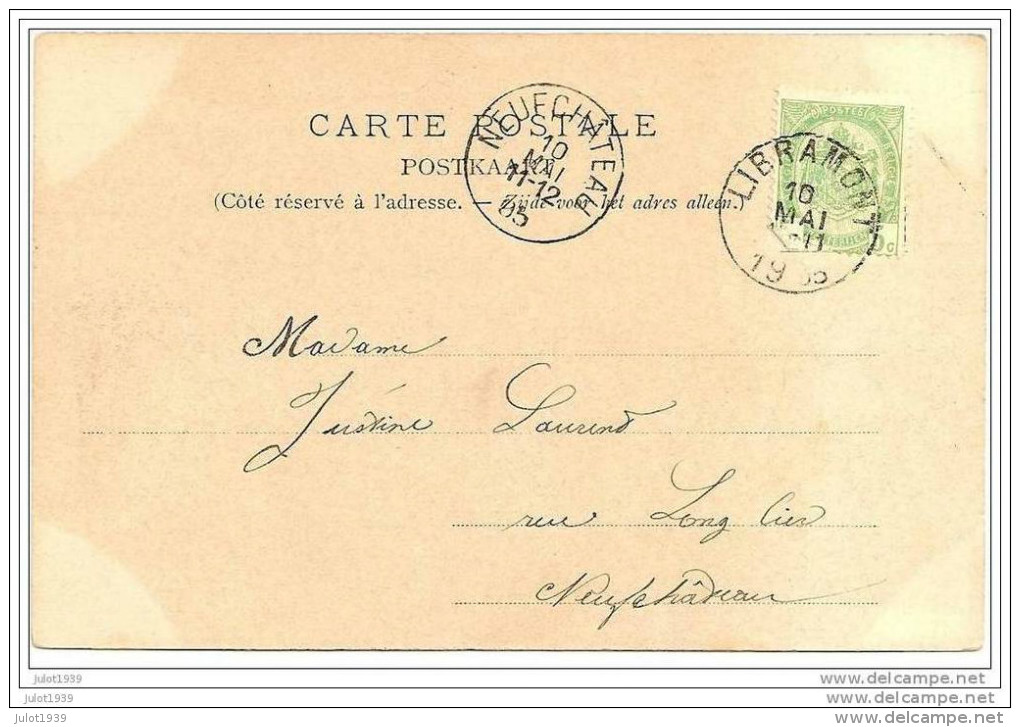 CARTE POSTALE
POSTKAART
(Côté réservé à l'adresse. — Zijde voor het adres alleen.)
NEUFCHATEAU
10
MAI
11-12
05
POSTES
LIBRAMONT
10
MAI
11
19 05
Madame
Justine Laurent
rue Longlier
Neufchâteau
julot1939
julot1939
julot1939
www.delcampe.net
www.delcampe.net
www.delcampe.net